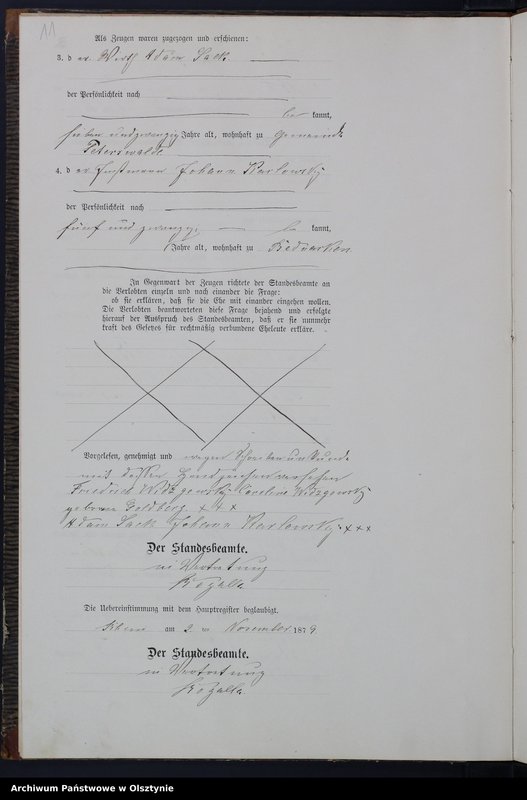 11
Als Zeugen waren zugezogen und erschienen:
3. d er Wirth Adam Sack
der Persönlichkeit nach
be kannt,
sieben und zwanzig Jahre alt, wohnhaft zu Gemeinde
Peterswalde
4. d er Instmann Johann Karlowsky
der Persönlichkeit nach
fünf und zwanzig be kannt,
Jahre alt, wohnhaft zu
In Gegenwart der Zeugen richtete der Standesbeamte an
die Verlobten einzeln und nach einander die Frage:
ob sie erklären, daß sie die Ehe mit einander eingehen wollen.
Die Verlobten beantworteten diese Frage bejahend und erfolgte
hierauf der Ausspruch des Standesbeamten, daß er sie nunmehr
kraft des Gesetzes für rechtmäßig verbundene Eheleute erkläre.
Vorgelesen, genehmigt und wegen Schreibensunkunde
mit Handzeichen versehen
Friedrich Caroline
geborene Goldberg + + +
Adam Sack Johann Karlowsky + + +
Der Standesbeamte.
in Vertretung
Die Uebereinstimmung mit dem Hauptregister beglaubigt.
am 2 ten November 1879
Der Standesbeamte.
in Vertretung
Archiwum Państwowe w Olsztynie